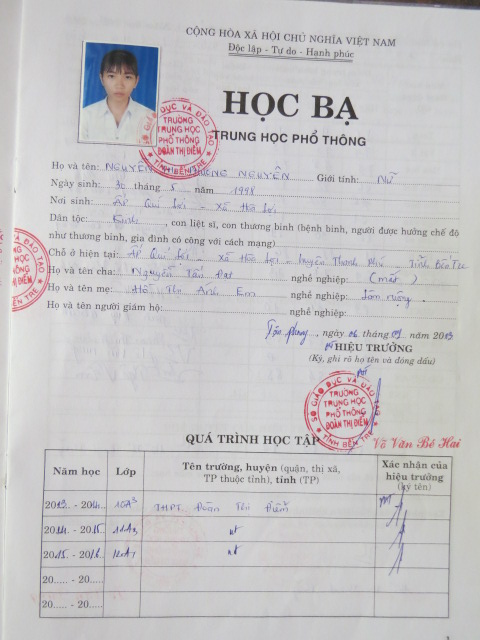 CỘNG HÒA XÃ HỘI CHỦ NGHĨA VIỆT NAM
Độc lập - Tự do - Hạnh phúc
HỌC BẠ
TRUNG HỌC PHỔ THÔNG
SỞ GIÁO DỤC VÀ ĐÀO TẠO
TRƯỜNG
TRUNG HỌC
PHỔ THÔNG
ĐOÀN THỊ ĐIỂM
TỈNH BẾN TRE
Họ và tên: NGUYỄN NGUYÊN Giới tính: Nữ
Ngày sinh: 30 tháng 5 năm 1998
Nơi sinh: Ấp Quí Lợi - Xã Hòa Lợi
Dân tộc: Kinh, con liệt sì, con thương binh (bệnh binh, người được hưởng chế độ
như thương binh, gia đình có công với cách mạng)
Chỗ ở hiện tại: Ấp Quí Lợi - Xã Hòa Lợi - Huyện Thạnh Phú - Tỉnh Bến Tre
Họ và tên cha: Nguyễn Tấn Đạt nghề nghiệp: (mất)
Họ và tên mẹ: Hồ Thị Ánh Em nghề nghiệp: Làm ruộng
Họ và tên người giám hộ: nghề nghiệp:
ĐÀO TẠO
HỌC
THÔNG
THỊ ĐIỂM
BẾN TRE
ngày 06 tháng 09 năm 2013
HIỆU TRƯỞNG
(Ký, ghi rõ họ tên và đóng dấu)
SỞ GIÁO DỤC VÀ ĐÀO TẠO
TRƯỜNG
TRUNG HỌC
PHỔ THÔNG
ĐOÀN THỊ ĐIỂM
TỈNH BẾN TRE
Võ Văn Bé Hai
QUÁ TRÌNH HỌC TẬP
Năm học Lớp Tên trường, huyện (quận, thị xã, TP thuộc tỉnh), tỉnh (TP) Xác nhận của hiệu trưởng (ký tên)
2013 - 2014 10A3 THPT Đoàn Thị Điểm
2014 - 2015 nt
2015 - 2016 12A1 nt
20..... - 20.....
20..... - 20.....